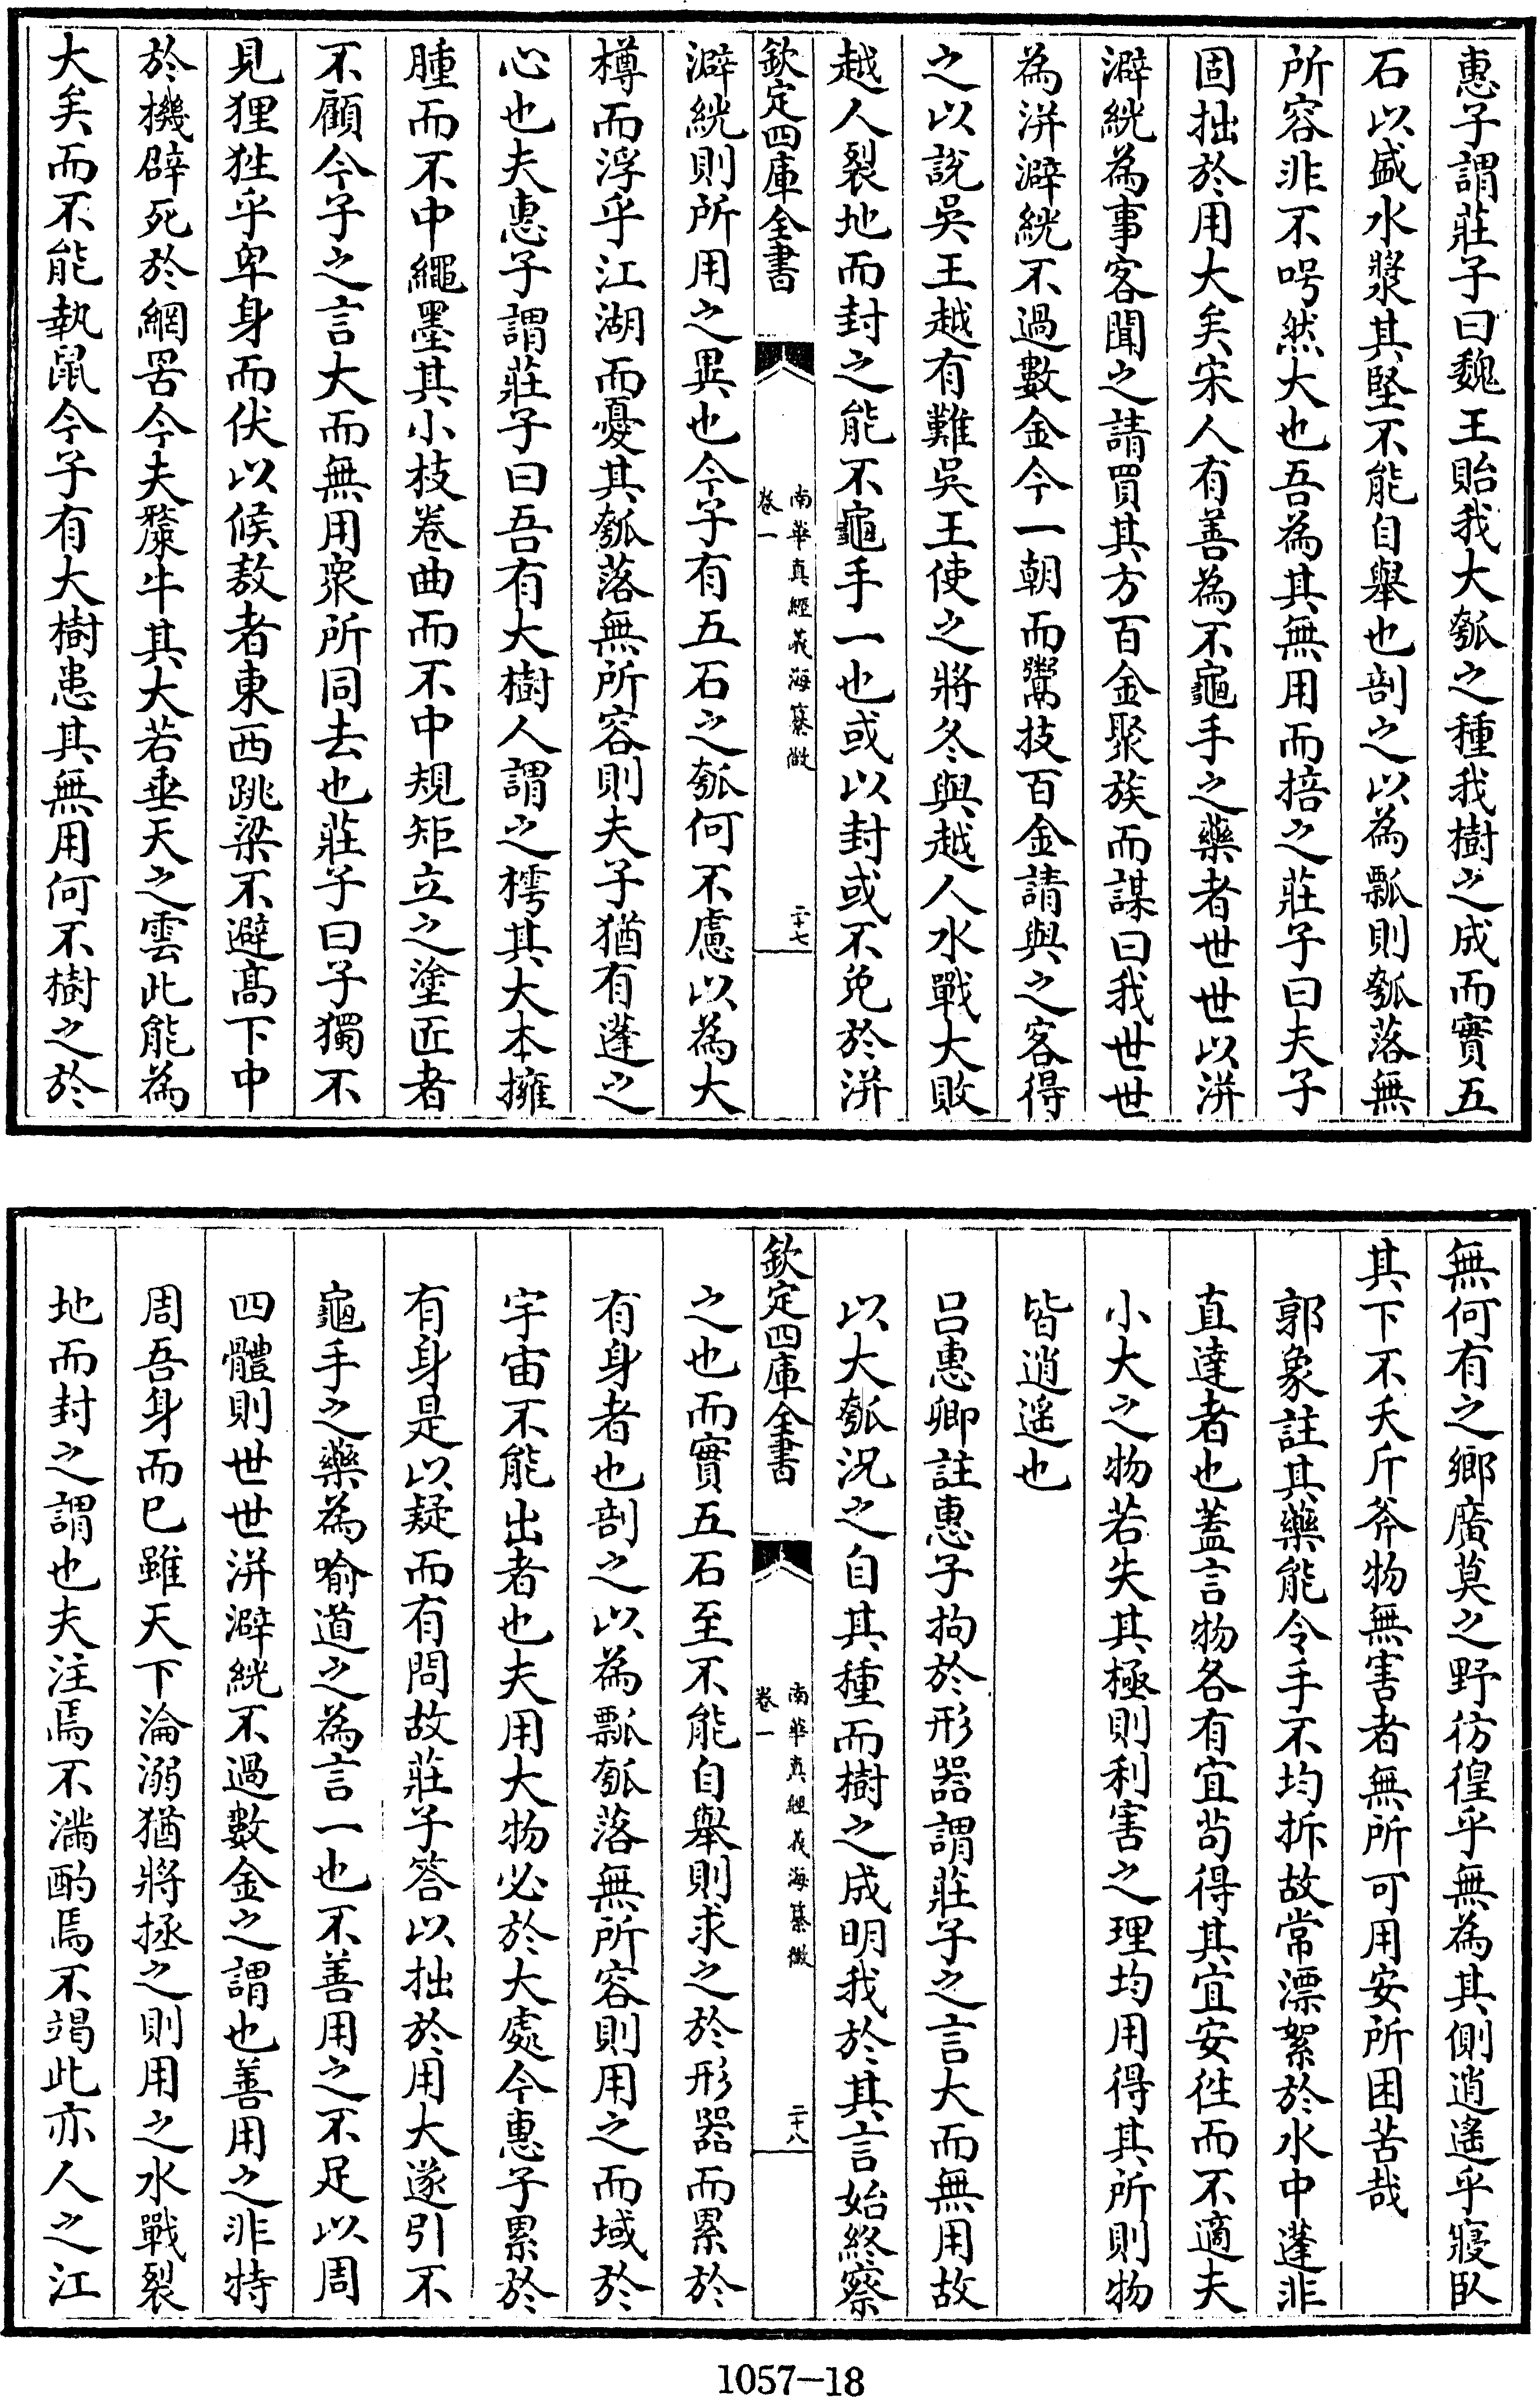 惠子謂莊子曰魏王貽我大瓠之種我樹之成而實五
石以盛水漿其堅不能自舉也剖之以為瓢則瓠落無
所容非不呺然大也吾為其無用而掊之莊子曰夫子
固拙於用大矣宋人有善為不龜手之藥者世世以洴
澼絖為事客聞之請買其方百金聚族而謀曰我世世
為洴澼絖不過數金今一朝而鬻技百金請與之客得
之以說吳王越有難吳王使之將冬與越人水戰大敗
越人裂地而封之能不龜手一也或以封或不免於洴
欽定四庫全書
南華真經義海纂微
卷一
二十七
澼絖則所用之異也今子有五石之瓠何不慮以為大
樽而浮乎江湖而憂其瓠落無所容則夫子猶有蓬之
心也夫惠子謂莊子曰吾有大樹人謂之樗其大本擁
腫而不中繩墨其小枝卷曲而不中規矩立之塗匠者
不顧今子之言大而無用衆所同去也莊子曰子獨不
見狸狌乎卑身而伏以候敖者東西跳梁不避髙下中
於機辟死於網罟今夫斄牛其大若垂天之雲此能為
大矣而不能執鼠今子有大樹患其無用何不樹之於
無何有之鄉廣莫之野彷徨乎無為其側逍遙乎寢臥
其下不夭斤斧物無害者無所可用安所困苦哉
郭象註其藥能令手不均拆故常漂絮於水中蓬非
直達者也蓋言物各有宜茍得其宜安徃而不適夫
小大之物若失其極則利害之理均用得其所則物
皆逍遥也
吕惠卿註惠子拘於形器謂莊子之言大而無用故
以大瓠況之自其種而樹之成明我於其言始終察
欽定四庫全書
南華真經義海纂微
卷一
二十八
之也而實五石至不能自舉則求之於形器而累於
有身者也剖之以為瓢瓠落無所容則用之而域於
宇宙不能出者也夫用大物必於大處今惠子累於
有身是以疑而有問故莊子答以拙於用大遂引不
龜手之藥為喻道之為言一也不善用之不足以周
四體則世世洴澼絖不過數金之謂也善用之非特
周吾身而已雖天下淪溺猶將拯之則用之水戰裂
地而封之謂也夫注焉不滿酌焉不竭此亦人之江
1057-18